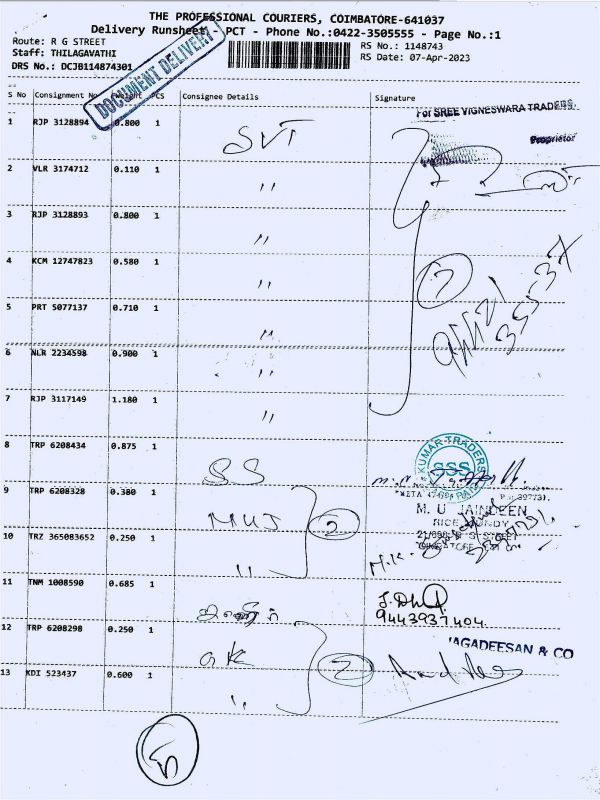 THE PROFESSIONAL COURIERS, COIMBATORE-641037
Delivery Runsheet - PCT - Phone No.:0422-3505555 - Page No.:1
Route: R G STREET
Staff: THILAGAVATHI
DRS No.: DCJB114874301
RS No.: 1148743
RS Date: 07-Apr-2023
DOCUMENT DELIVERY
S No Consignment No Weight PCS Consignee Details Signature
For SREE VIGNESWARA TRADERS.
Proprietor
1 RJP 3128894 0.800 1 SVT
2 VLR 3174712 0.110 1 〃
3 RJP 3128893 0.800 1 〃
4 KCM 12747823 0.580 1 〃
7
5 PRT 5077137 0.710 1 〃
6 NLR 2234598 0.900 1 〃
7 RJP 3117149 1.180 1 〃
8 TRP 6208434 0.875 1 SS
KUMAR-TRADERS
SSS
9 TRP 6208328 0.380 1 MUJ
2
M. U JAINDEEN
RICE MUNDY
10 TRZ 365083652 0.250 1 〃
11 TNM 1008590 0.685 1
9443937404
12 TRP 6208298 0.250 1 GK
2
JAGADEESAN & CO
13 KDI 523437 0.600 1 〃